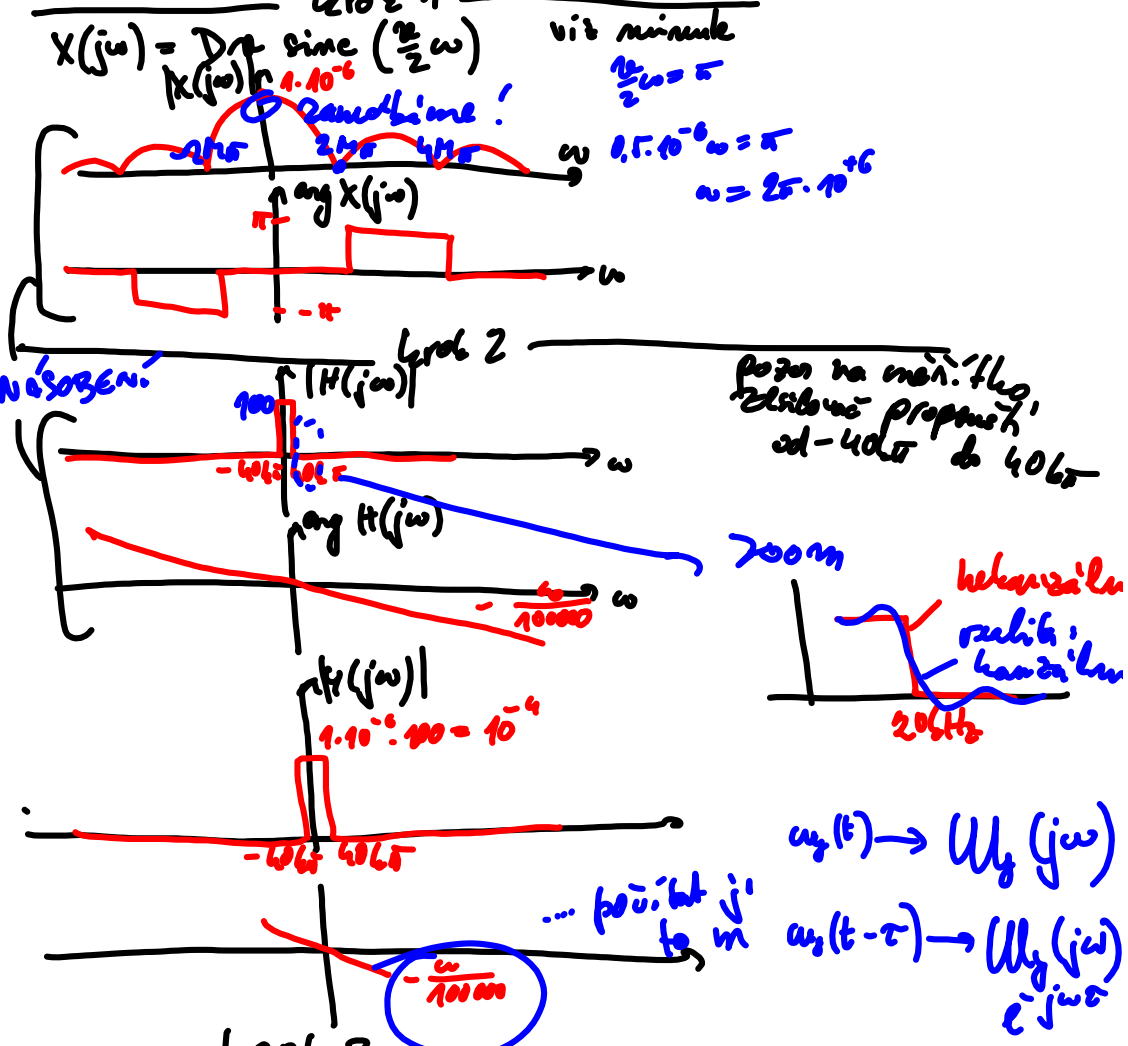 X(jω) = Dϑ sinc (ϑ/2 ω)
viz minule
ϑ/2 ω = π
|X(jω)|
1·10⁻⁶
zanedbáme!
-2Mπ 2Mπ 4Mπ
ω
0,5·10⁻⁶ω = π
ω = 2π·10⁺⁶
arg X(jω)
π
ω
- π
krok 2
NÁSOBENÍ
|H(jω)|
100
-40kπ 40kπ
ω
pozor na měřítko
zesilovač propustí
od -40kπ do 40kπ
arg H(jω)
- ω/100000
ω
zoom
nekauzální
realita:
kauzální
20kHz
|H(jω)|
1·10⁻⁶·100 = 10⁻⁴
-40kπ 40kπ
- ω/100000
... použit j
to m
(t) → (jω)
(t-τ) → (jω)
e⁻ʲωτ